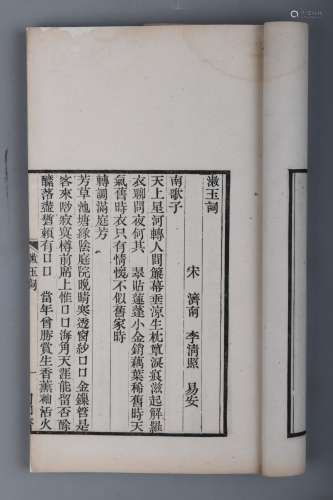 漱玉詞
宋 濟南 李清照 易安
南歌子
天上星河轉人間簾幕垂涼生枕簟淚痕滋起解羅
衣聊問夜何其 翠貼蓮蓬小金銷藕葉稀舊時天
氣舊時衣只有情懷不似舊家時
轉調滿庭芳
芳草池塘綠陰庭院晚晴寒透窗紗囗囗金鏁管是
客來唦寂寞樽前席上惟囗囗海角天涯能留否酴
釄落盡猶賴有囗囗 當年曾勝賞生香薰袖活火
漱玉詞
一